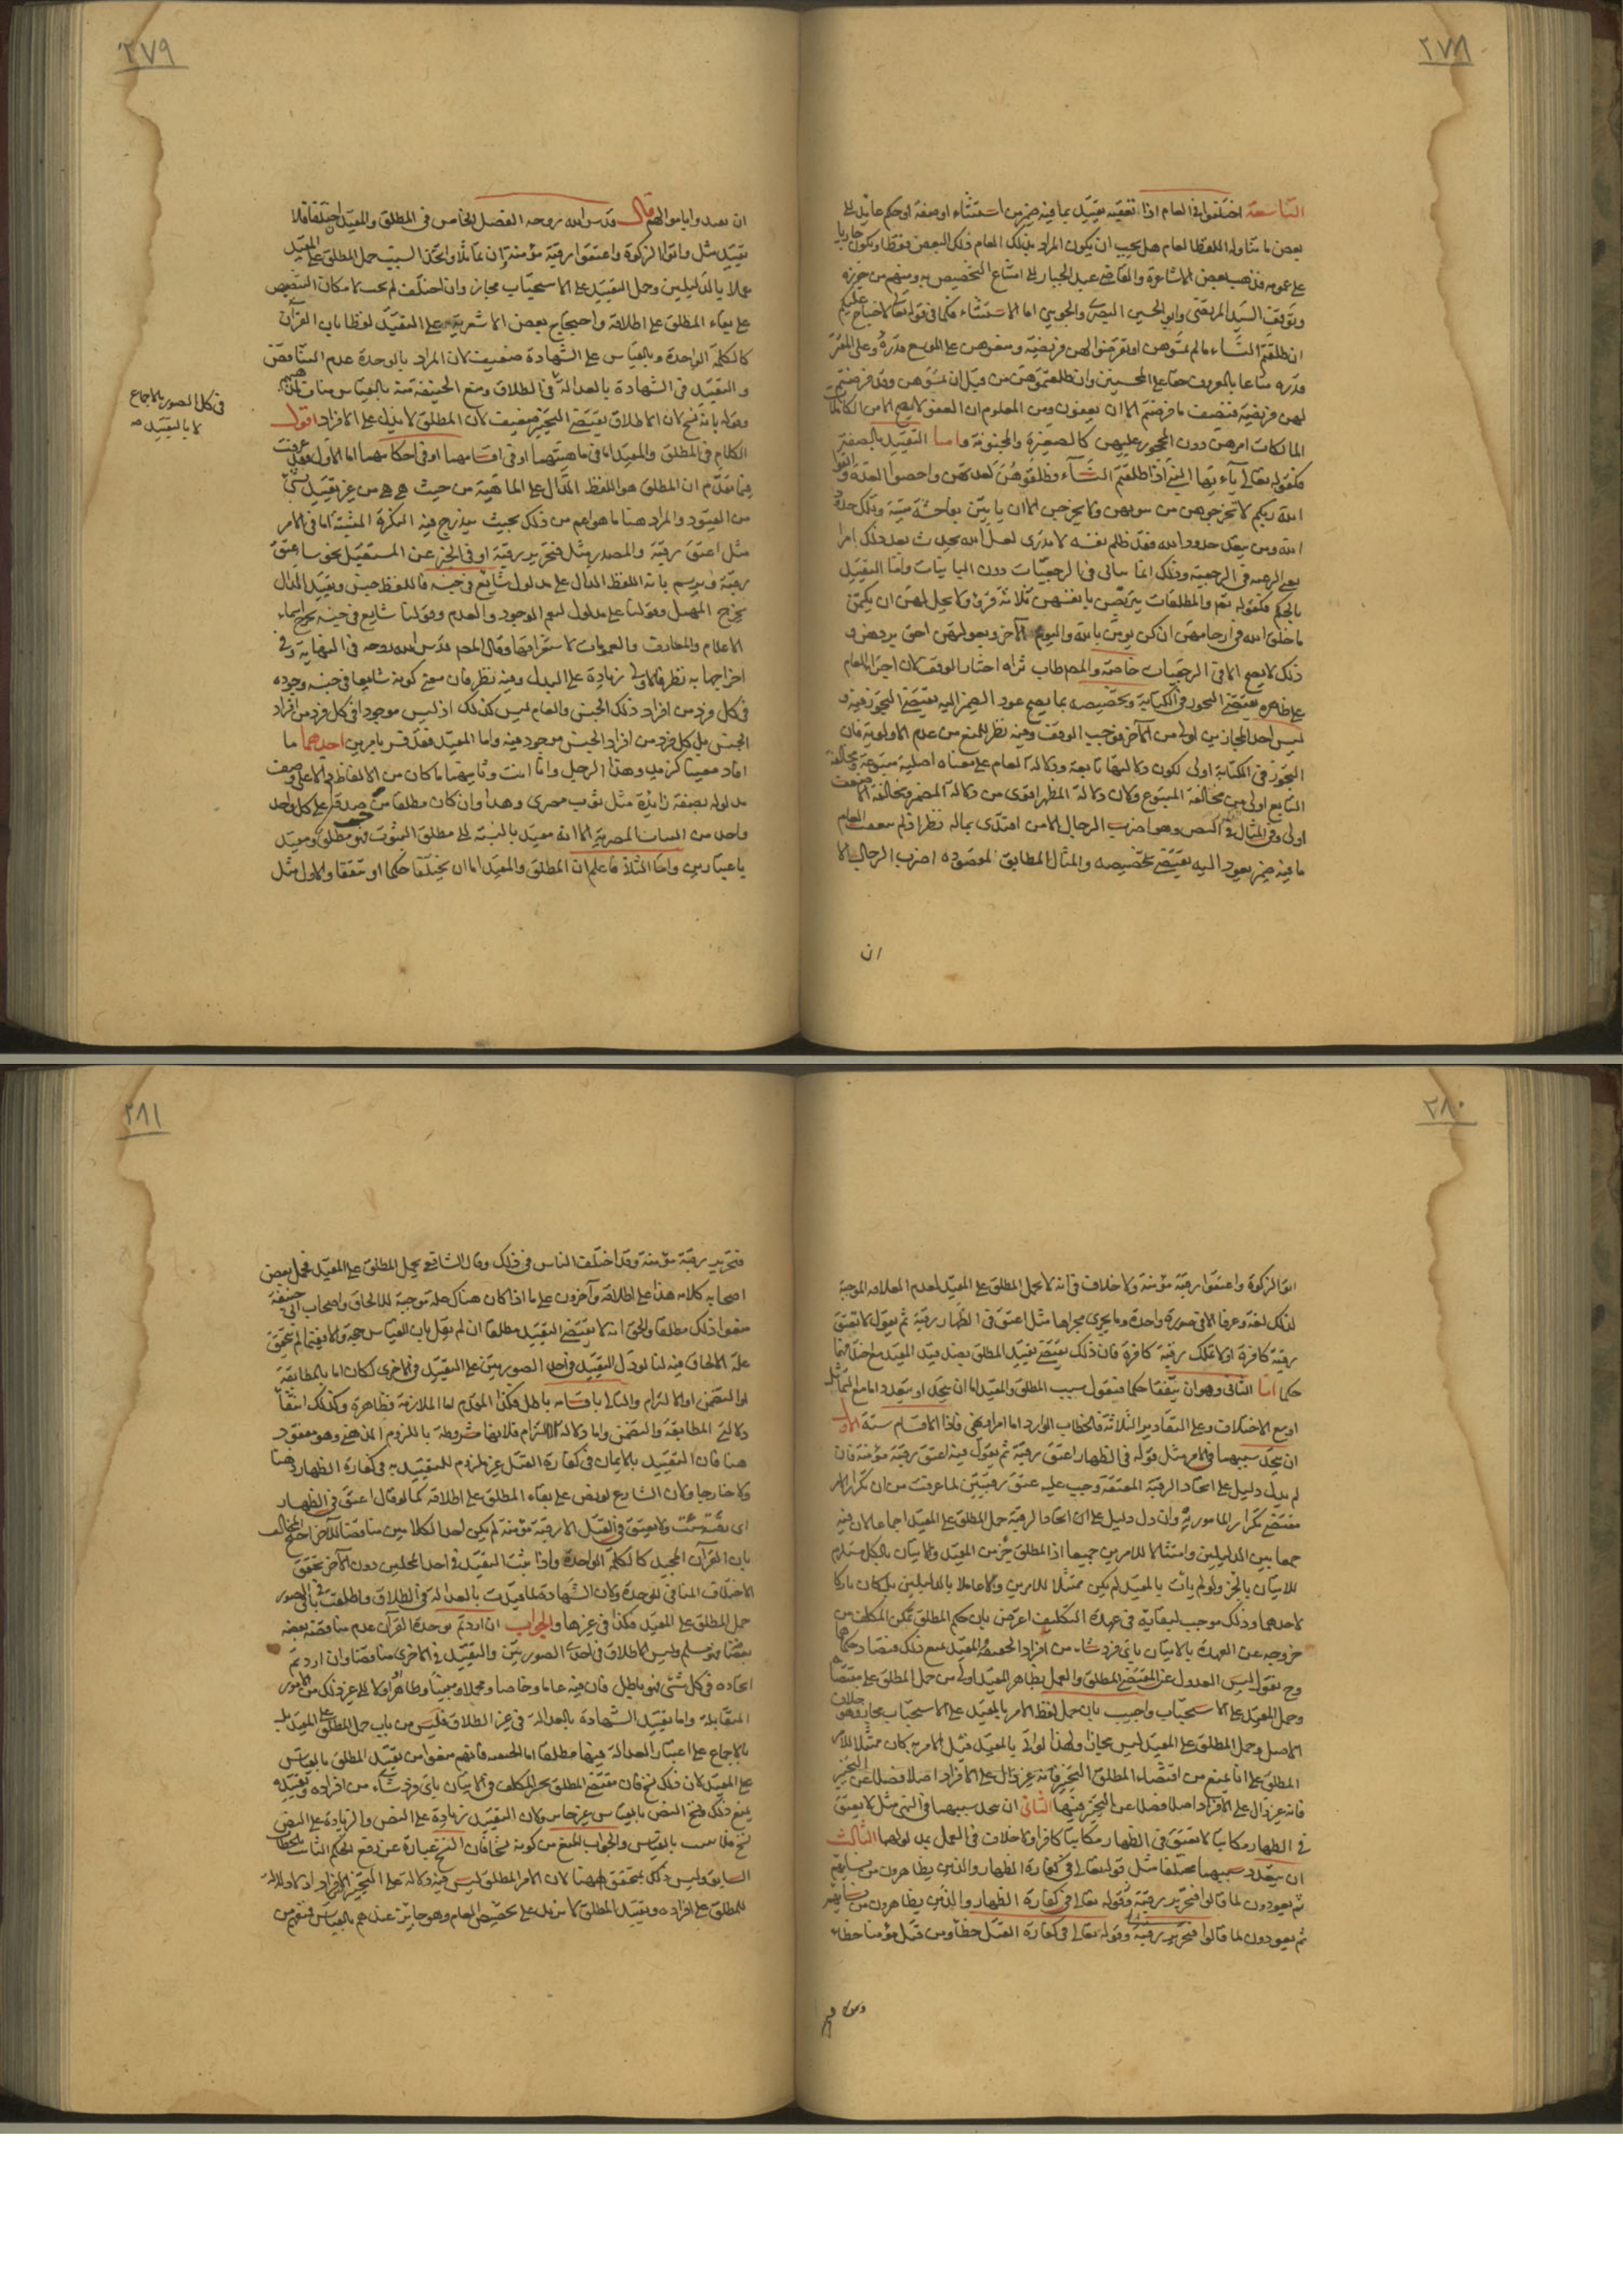 ٢٧٨
التاسعة اختلفوا في العام اذا تعقبه تقييد بما فيه ضمير من استثناء او صفة او حكم عايد الى
بعض ما تناوله اللفظ العام هل يجب ان يكون المراد بذلك العام ذلك البعض فقط او يكون جاريا
على عمومه فذهب بعض الاشاعرة والقاضي عبد الجبار الى امتناع التخصيص به ومنهم من جوزه
وتوقف السيد المرتضى وابو الحسين البصري والجويني اما الاستثناء فكما في قوله تعالى لا جناح عليكم
ان طلقتم النساء ما لم تمسوهن او تفرضوا لهن فريضة ومتعوهن على الموسع قدره وعلى المقتر
قدره متاعا بالمعروف حقا على المحسنين وان طلقتموهن من قبل ان تمسوهن وقد فرضتم
لهن فريضة فنصف ما فرضتم الا ان يعفون ومن المعلوم ان العفو لا يصح الا من الكاملات
المالكات امرهن دون المحجور عليهن كالصغيرة والمجنونة واما التقييد بالصفة
فكقوله تعالى يا ايها النبي اذا طلقتم النساء فطلقوهن لعدتهن واحصوا العدة واتقوا
الله ربكم لا تخرجوهن من بيوتهن ولا يخرجن الا ان ياتين بفاحشة مبينة وتلك حدود
الله ومن يتعد حدود الله فقد ظلم نفسه لا تدري لعل الله يحدث بعد ذلك امرا
يعني الرغبة في الرجعة وذلك انما يتاتى في الرجعيات دون البائنات واما التقييد
بالحكم فكقوله تعم والمطلقات يتربصن بانفسهن ثلاثة قروء ولا يحل لهن ان يكتمن
ما خلق الله في ارحامهن ان كن يومن بالله واليوم الآخر وبعولتهن احق بردهن و
ذلك لا يصح الا في الرجعيات خاصة والمصطاب ثراه اختار الوقف لان اجراء العام
على ظاهره يقتضي التجوز في الكناية وتخصيصه بما يصح عود الضمير اليه يقتضي التجوز فيه و
ليس احد المجازين اولى من الآخر فوجب الوقف وفيه نظر للمنع من عدم الاولوية فان
التجوز في الكناية اولى لكون دلالتها تابعة ودلالة العام على معناه اصلية متبوعة ومخالفة
التابع اولى من مخالفة المتبوع ولان دلالة المظهر اقوى من دلالة المضمر ومخالفة الاضعف
اولى وفي المثال في النص وهو اضرب الرجال الا من افتدى بماله نظر اذ لم يتعقب العام
ما فيه ضمير يعود اليه يقتضي تخصيصه والمثال المطابق لمقصوده اضرب الرجال الا
ان
٢٧٩
ان تعبدوا باموالهم قال قدس الله روحه الفصل الخامس في المطلق والمقيد ان اختلفا فلا
تقييد مثل واتوا الزكوة واعتقوا رقبة مؤمنة وان تماثلا واتحد السبب حمل المطلق على المقيد
عملا بالدليلين وحمل التقييد على الاستحباب مجاز وان اختلف لم يحمل لامكان التنصيص
على بقاء المطلق على اطلاقه واحتجاج بعض الاشعرية على التقييد لفظا بان القرآن
كالكلمة الواحدة وبالقياس على الشهادة ضعيف لان المراد بالوحدة عدم التناقض
والتقييد في الشهادة بالعدالة في الطلاق ومنع الحنفية منه بالقياس
وقوله بانه نسخ لان الاطلاق يقتضي التخيير ضعيف لان المطلق لا يدل على الافراد اقول
في كل الصور بالاجماع
لا بالتقييد صه
الكلام في المطلق والمقيد اما في ماهيتهما او في اقسامهما او في احكامهما اما الاول فقد عرفت
فيما تقدم ان المطلق هو اللفظ الدال على الماهية من حيث هي هي من غير تقييد بشيء
من القيود والمراد هنا ما هو اعم من ذلك بحيث يندرج فيه النكرة المثبتة اما في الامر
مثل اعتق رقبة والمصدر مثل فتحرير رقبة او في الخبر عن المستقبل نحو ساعتق
رقبة ورسم بانه اللفظ الدال على مدلول شائع في جنسه فاللفظ جنس وتقييد الدال
يخرج المهمل وقولنا على مدلول ليعم الموجود والعدم وقولنا شايع في جنسه يخرج اسماء
الاعلام والمعارف والعمومات لاستغراقها وقال المصر قدس الله روحه في النهاية وفي
اخراجها به نظر فالاولى زيادة على البدل وفيه نظر فان معنى كونه شايعا في جنسه وجوده
في كل فرد من افراد ذلك الجنس والعام ليس كذلك اذ ليس موجودا في كل فرد من افراد
الجنس بل كل فرد من افراد الجنس موجود فيه واما المقيد فقد فسر بامرين احدهما ما
افاد معينا كزيد وهذا الرجل وانا انت وثانيهما ما كان من الالفاظ دالا على وصف
مدلوله بصفة زايدة مثل ثوب مصري وهذا وان كان مطلقا من حيث صدقه على كل واحد
واحد من الثياب المصرية الا انه مقيد بالنسبة الى مطلق الثوب فهو مطلق ومقيد
باعتبارين واما الثالث فاعلم ان المطلق والمقيد اما ان يختلفا حكما او يتفقا والاول مثل
٢٨٠
اتوا الزكوة واعتقوا رقبة مؤمنة ولا خلاف في انه لا يحمل المطلق على المقيد لعدم العلاقة الموجبة
لذلك لغة وعرفا الا في صورة واحدة وما يجري مجراها مثل اعتق في الظهار رقبة ثم يقول لا تعتق
رقبة كافرة او لا تملك رقبة كافرة فان ذلك يقتضي تقييد المطلق بضد قيد المقيد مع اختلافهما
حكما اما الثاني وهو ان يتفقا حكما فنقول سبب المطلق والمقيد اما ان يتحد او يتعدد اما مع التماثل
او مع الاختلاف وعلى التقادير الثلاثة فالخطاب الوارد اما امر او نهي فاذا الاقسام ستة الاول
ان يتحد سببهما في الامر مثل قوله في الظهار اعتق رقبة ثم يقول فيه اعتق رقبة مؤمنة فان
لم يدل دليل على اتحاد الرقبة المعتقة وجب عليه عتق رقبتين لما عرفت من ان تكرار الامر
مقتضى تكرار المامور به وان دل دليل على اتحاد الرقبة حمل المطلق على المقيد اجماعا لان فيه
جمعا بين الدليلين وامتثالا للامرين جميعا اذ المطلق جزء من المقيد والاتيان بالكل مستلزم
للاتيان بالجزء ولو لم يات بالمقيد لم يكن ممتثلا للامرين ولا عاملا بالدليلين بل كان تاركا
لاحدهما وذلك موجب لبقائه في عهدة التكليف اعترض بان حكم المطلق تمكن المكلف من
خروجه عن العهدة بالاتيان باي فرد شاء من افراد الحقيقة والمقيد يمنع ذلك فتضاد حكمهما
وح نقول ليس العدول عن المقتضى المطلق والعمل بظاهر المقيد اولى من حمل المطلق على مقتضاه
وحمل المقيد على الاستحباب واجيب بان حمل لفظ الامر بالمقيد على الاستحباب مجاز وهو خلاف
الاصل وحمل المطلق على المقيد ليس مجازا ولهذا لو اتى بالمقيد قبل الامر به كان ممتثلا للامر
المطلق على انا نمنع من اقتضاء المطلق التخيير فانه غير دال على الافراد اصلا فضلا عن التخيير
فانه غير دال على الافراد اصلا فضلا عن التخيير فيها الثاني ان يتحد سببهما في النهي مثل لا يعتق
في الظهار مكاتبا لا تعتق في الظهار مكاتبا كافرا ولا خلاف في العمل بمدلولهما الثالث
ان يتعدد سببهما مختلفا مثل قوله تعالى في كفارة الظهار والذين يظاهرون من نسائهم
ثم يعودون لما قالوا فتحرير رقبة وقوله تعالى في كفارة الظهار والذين يظاهرون من نسائهم
ثم يعودون لما قالوا فتحرير رقبة وقوله تعالى في كفارة القتل خطأ ومن قتل مؤمنا خطأ
٢٨١
فتحرير رقبة مؤمنة وقد اختلف الناس في ذلك وقال الشافعي يحمل المطلق على المقيد فحمل بعض
اصحابه كلامه هذا على اطلاقه وآخرون على ما اذا كان هناك علة موجبة للالحاق واصحاب ابي حنيفة
منعوا ذلك مطلقا والحق انه لا يقتضي التقييد مطلقا ان لم نقل بان القياس حجة والا يقتضي ان تحقق
علة الالحاق فيه لنا لو دل التقييد في احد الصورتين على التقييد في الاخرى لكان اما بالمطابقة
او التضمن او الالتزام والتالي باقسامه باطل فكذا المقدم اما الملازمة فظاهرة وكذلك انتفاء
دلالتي المطابقة والتضمن واما دلالة الالتزام فلانها مشروطة باللزوم الذهني وهو مفقود
هنا فان التقييد بالايمان في كفارة القتل غير ملزوم للتقييد به في كفارة الظهار ذهنا
ولا خارجا ولان الشارع لو نص على بقاء المطلق على اطلاقه كما لو قال اعتق في الظهار
اي رقبة شئت ولا تعتق في القتل الا رقبة مؤمنة لم يكن احد الكلامين مناقضا للآخر احتج المخالف
بان القرآن المجيد كالكلمة الواحدة واذا ثبت التقييد في احد المحلين دون الآخر تحقق
الاختلاف المنافي للوحدة ولان الشهادة لما قيدت بالعدالة في الطلاق واطلقت في باقي الصور
حمل المطلق على المقيد فكذا في غيرها والجواب ان اردتم بوحدة القرآن عدم مناقضة بعضه
بعضا فهو مسلم وليس الاطلاق في احدى الصورتين والتقييد في الاخرى مناقضا وان اردتم
اتحاده في كل شئ فهو باطل فان فيه عاما وخاصا ومجملا ومبينا وظاهرا واولا الى غير ذلك من الامور
المتقابلة واما تقييد الشهادة بالعدالة في غير الطلاق فليس من باب حمل المطلق على المقيد بل
بالاجماع على اعتبار العدالة فيها مطلقا اما الحنفية فانهم منعوا من تقييد المطلق بالقياس
على المقيد لان ذلك نسخ فان مقتضى المطلق تخيير المكلف في الاتيان باي فرد شاء من افراده وتقييده
يمنع ذلك فنسخ النص بالقياس غير جايز ولان التقييد زيادة على النص والزيادة على النص
نسخ فلا يثبت بالقياس والجواب المنع من كونه نسخا فان النسخ عبارة عن رفع الحكم الثابت بالخطاب
السابق وليس ذلك بمتحقق ههنا لان الامر المطلق ليس فيه دلالة على التخيير في الافراد اذ لا دلالة
للمطلق على افراده وتقييد المطلق لا يزيد على تخصيص العام وهو جايز عندهم بالقياس فمنعهم من